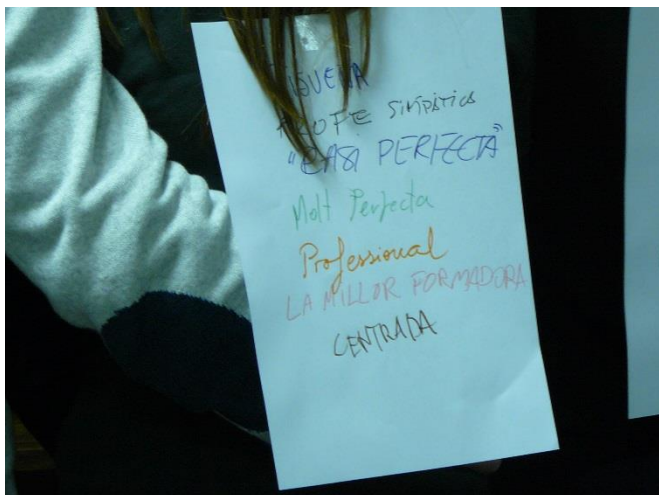 PROFE SIMPÀTICA
"CASI PERFECTA"
Molt Perfecta
Professional
LA MILLOR FORMADORA
CENTRADA